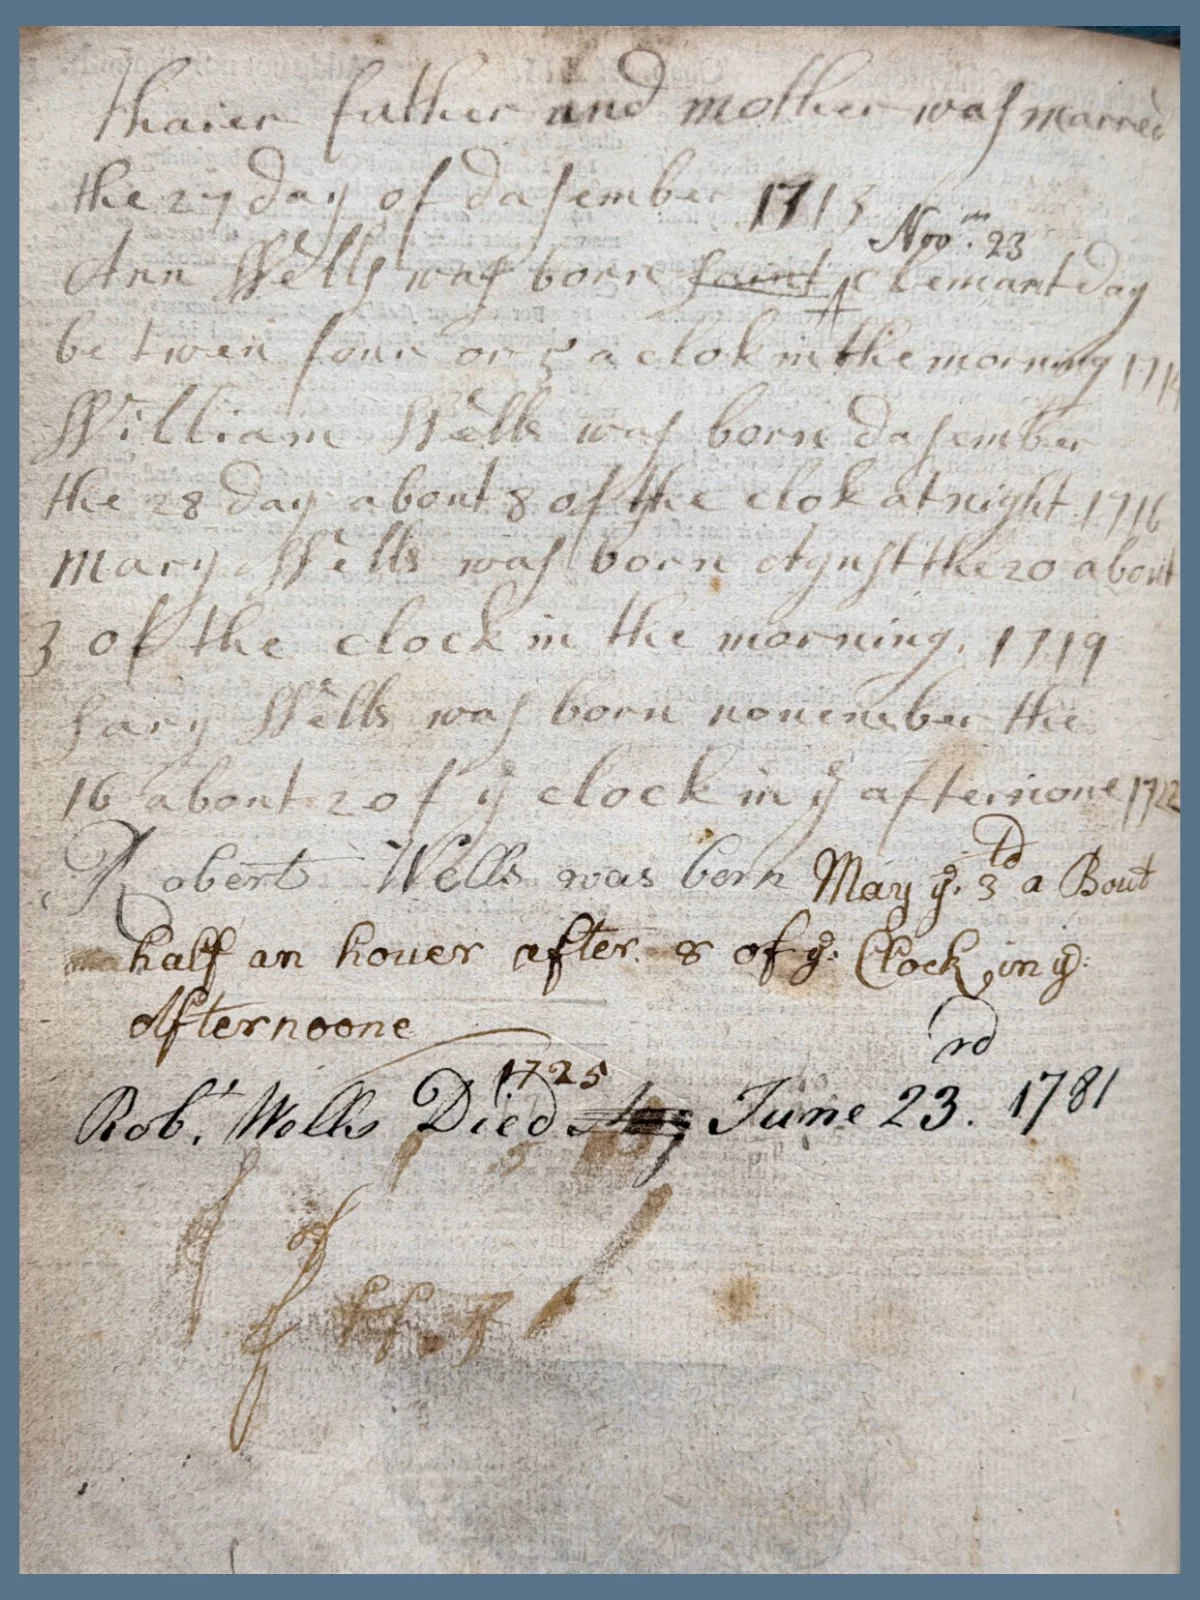 thaier father and mother was married
the 27 day of dasember 1713
Novm. 23
Ann Wells was born saint clemant day
betwen four or 5 a clok in the morning 1714
William Wells was born dasember
the 28 day about 8 of the clok at night 1716
Mary Wells was born Agust the 20 about
3 of the clock in the morning. 1719
Sary Wells was born nouember the
16 about 2 of ye clock in ye afternone 1722
Robert Wells was born May ye. 3td a Bout
half an houer after 8 of ye: Clock in ye:
Afternoone
1725
Robt. Wells Died June 23rd. 1781